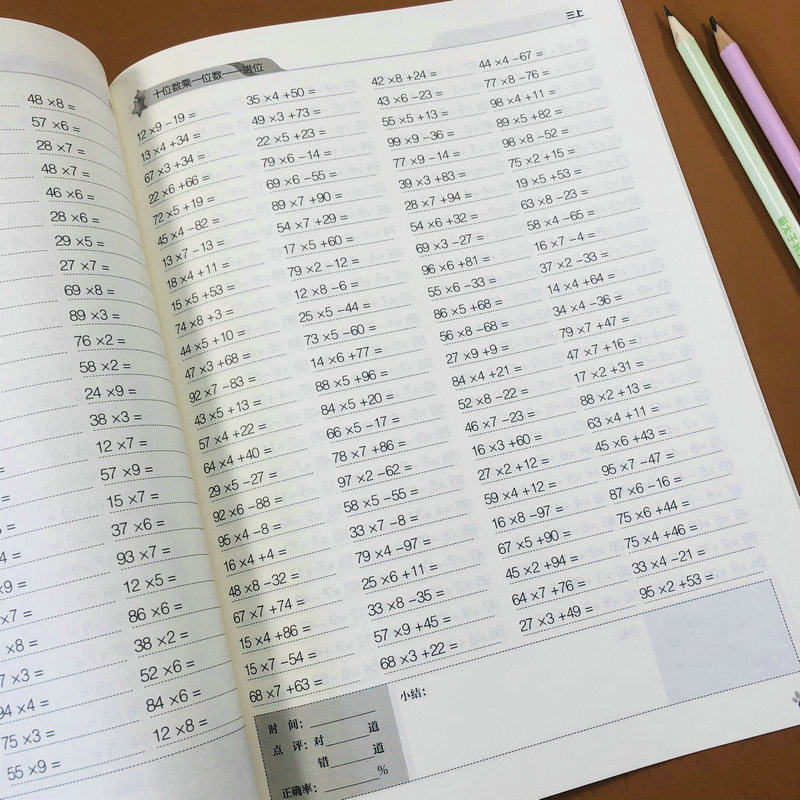 三上
十位数乘一位数——进位
×9 =
×7 =
×8 =
7 ×3 =
94 ×4 =
75 ×3 =
55 ×9 =
48 ×8 =
57 ×6 =
28 ×7 =
48 ×7 =
46 ×6 =
28 ×6 =
29 ×5 =
27 ×7 =
69 ×8 =
89 ×3 =
76 ×2 =
58 ×2 =
24 ×9 =
38 ×3 =
12 ×7 =
57 ×9 =
15 ×7 =
37 ×6 =
93 ×7 =
12 ×5 =
86 ×6 =
38 ×2 =
52 ×6 =
84 ×6 =
12 ×8 =
12 ×9 −19 =
13 ×4 +34 =
67 ×3 +34 =
22 ×6 +66 =
72 ×5 +19 =
45 ×4 −82 =
13 ×7 −13 =
18 ×4 +11 =
15 ×5 +53 =
74 ×8 +3 =
44 ×5 +10 =
47 ×3 +68 =
92 ×7 −83 =
43 ×5 +13 =
57 ×4 +22 =
64 ×4 +40 =
29 ×5 −27 =
92 ×6 −88 =
95 ×4 −8 =
16 ×4 +4 =
48 ×8 −32 =
67 ×7 +74 =
15 ×4 +86 =
15 ×7 −54 =
68 ×7 +63 =
35 ×4 +50 =
49 ×3 +73 =
22 ×5 +23 =
79 ×6 −14 =
69 ×6 −55 =
89 ×7 +90 =
54 ×7 +29 =
17 ×5 +60 =
79 ×2 −12 =
12 ×8 −6 =
25 ×5 −44 =
73 ×5 −60 =
14 ×6 +77 =
88 ×5 +96 =
84 ×5 +20 =
66 ×5 −17 =
78 ×7 +86 =
97 ×2 −62 =
58 ×5 −55 =
33 ×7 −8 =
79 ×4 −97 =
25 ×6 +11 =
33 ×8 −35 =
57 ×9 +45 =
68 ×3 +22 =
42 ×8 +24 =
43 ×6 −23 =
55 ×5 +13 =
99 ×9 −36 =
77 ×9 −14 =
39 ×3 +83 =
28 ×7 +94 =
54 ×6 +32 =
69 ×3 −27 =
96 ×6 +81 =
55 ×6 −33 =
86 ×5 +68 =
56 ×8 −68 =
27 ×9 +9 =
84 ×4 +21 =
52 ×8 −22 =
46 ×7 −23 =
16 ×3 +60 =
27 ×2 +12 =
59 ×4 +12 =
16 ×8 −97 =
67 ×5 +90 =
45 ×2 +94 =
64 ×7 +76 =
27 ×3 +49 =
44 ×4 −67 =
77 ×8 −76 =
98 ×4 +11 =
89 ×5 +82 =
98 ×8 −52 =
75 ×2 +15 =
19 ×5 +53 =
63 ×8 −23 =
58 ×4 −65 =
16 ×7 −4 =
37 ×2 −33 =
14 ×4 +64 =
34 ×4 −36 =
79 ×7 +47 =
47 ×7 +16 =
17 ×2 +31 =
88 ×2 +13 =
63 ×4 +11 =
45 ×6 +43 =
95 ×7 −47 =
87 ×6 −16 =
75 ×6 +44 =
75 ×4 +46 =
33 ×4 −21 =
95 ×2 +53 =
时 间：
点 评：对 道
错 道
正确率： %
小结：